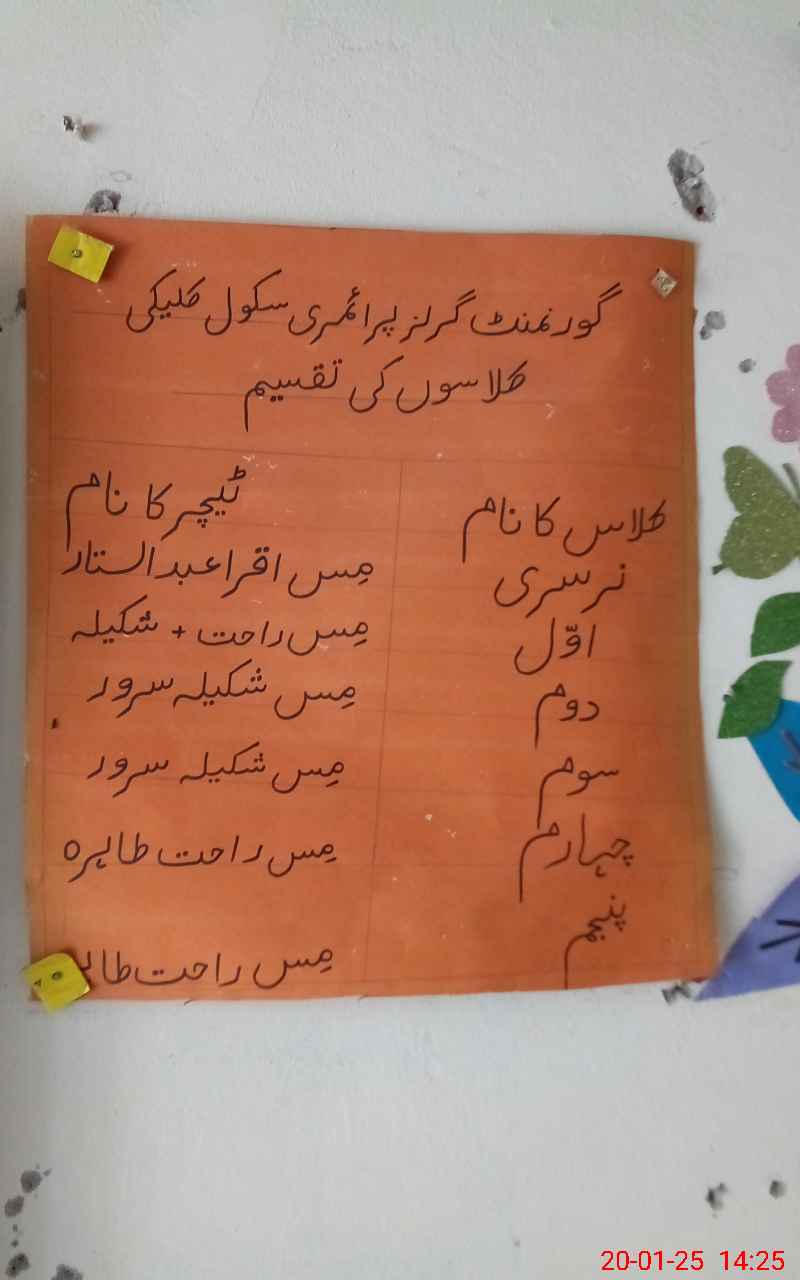 گورنمنٹ گرلز پرائمری سکول کلیکی
کلاسوں کی تقسیم
کلاس کا نام ٹیچر کا نام
نرسری مِس اقرا عبدالستار
اوّل مِس راحت + شکیلہ
دوم مِس شکیلہ سرور
سوم مِس شکیلہ سرور
چہارم مِس راحت طاہرہ
پنجم مِس راحت
20-01-25 14:25